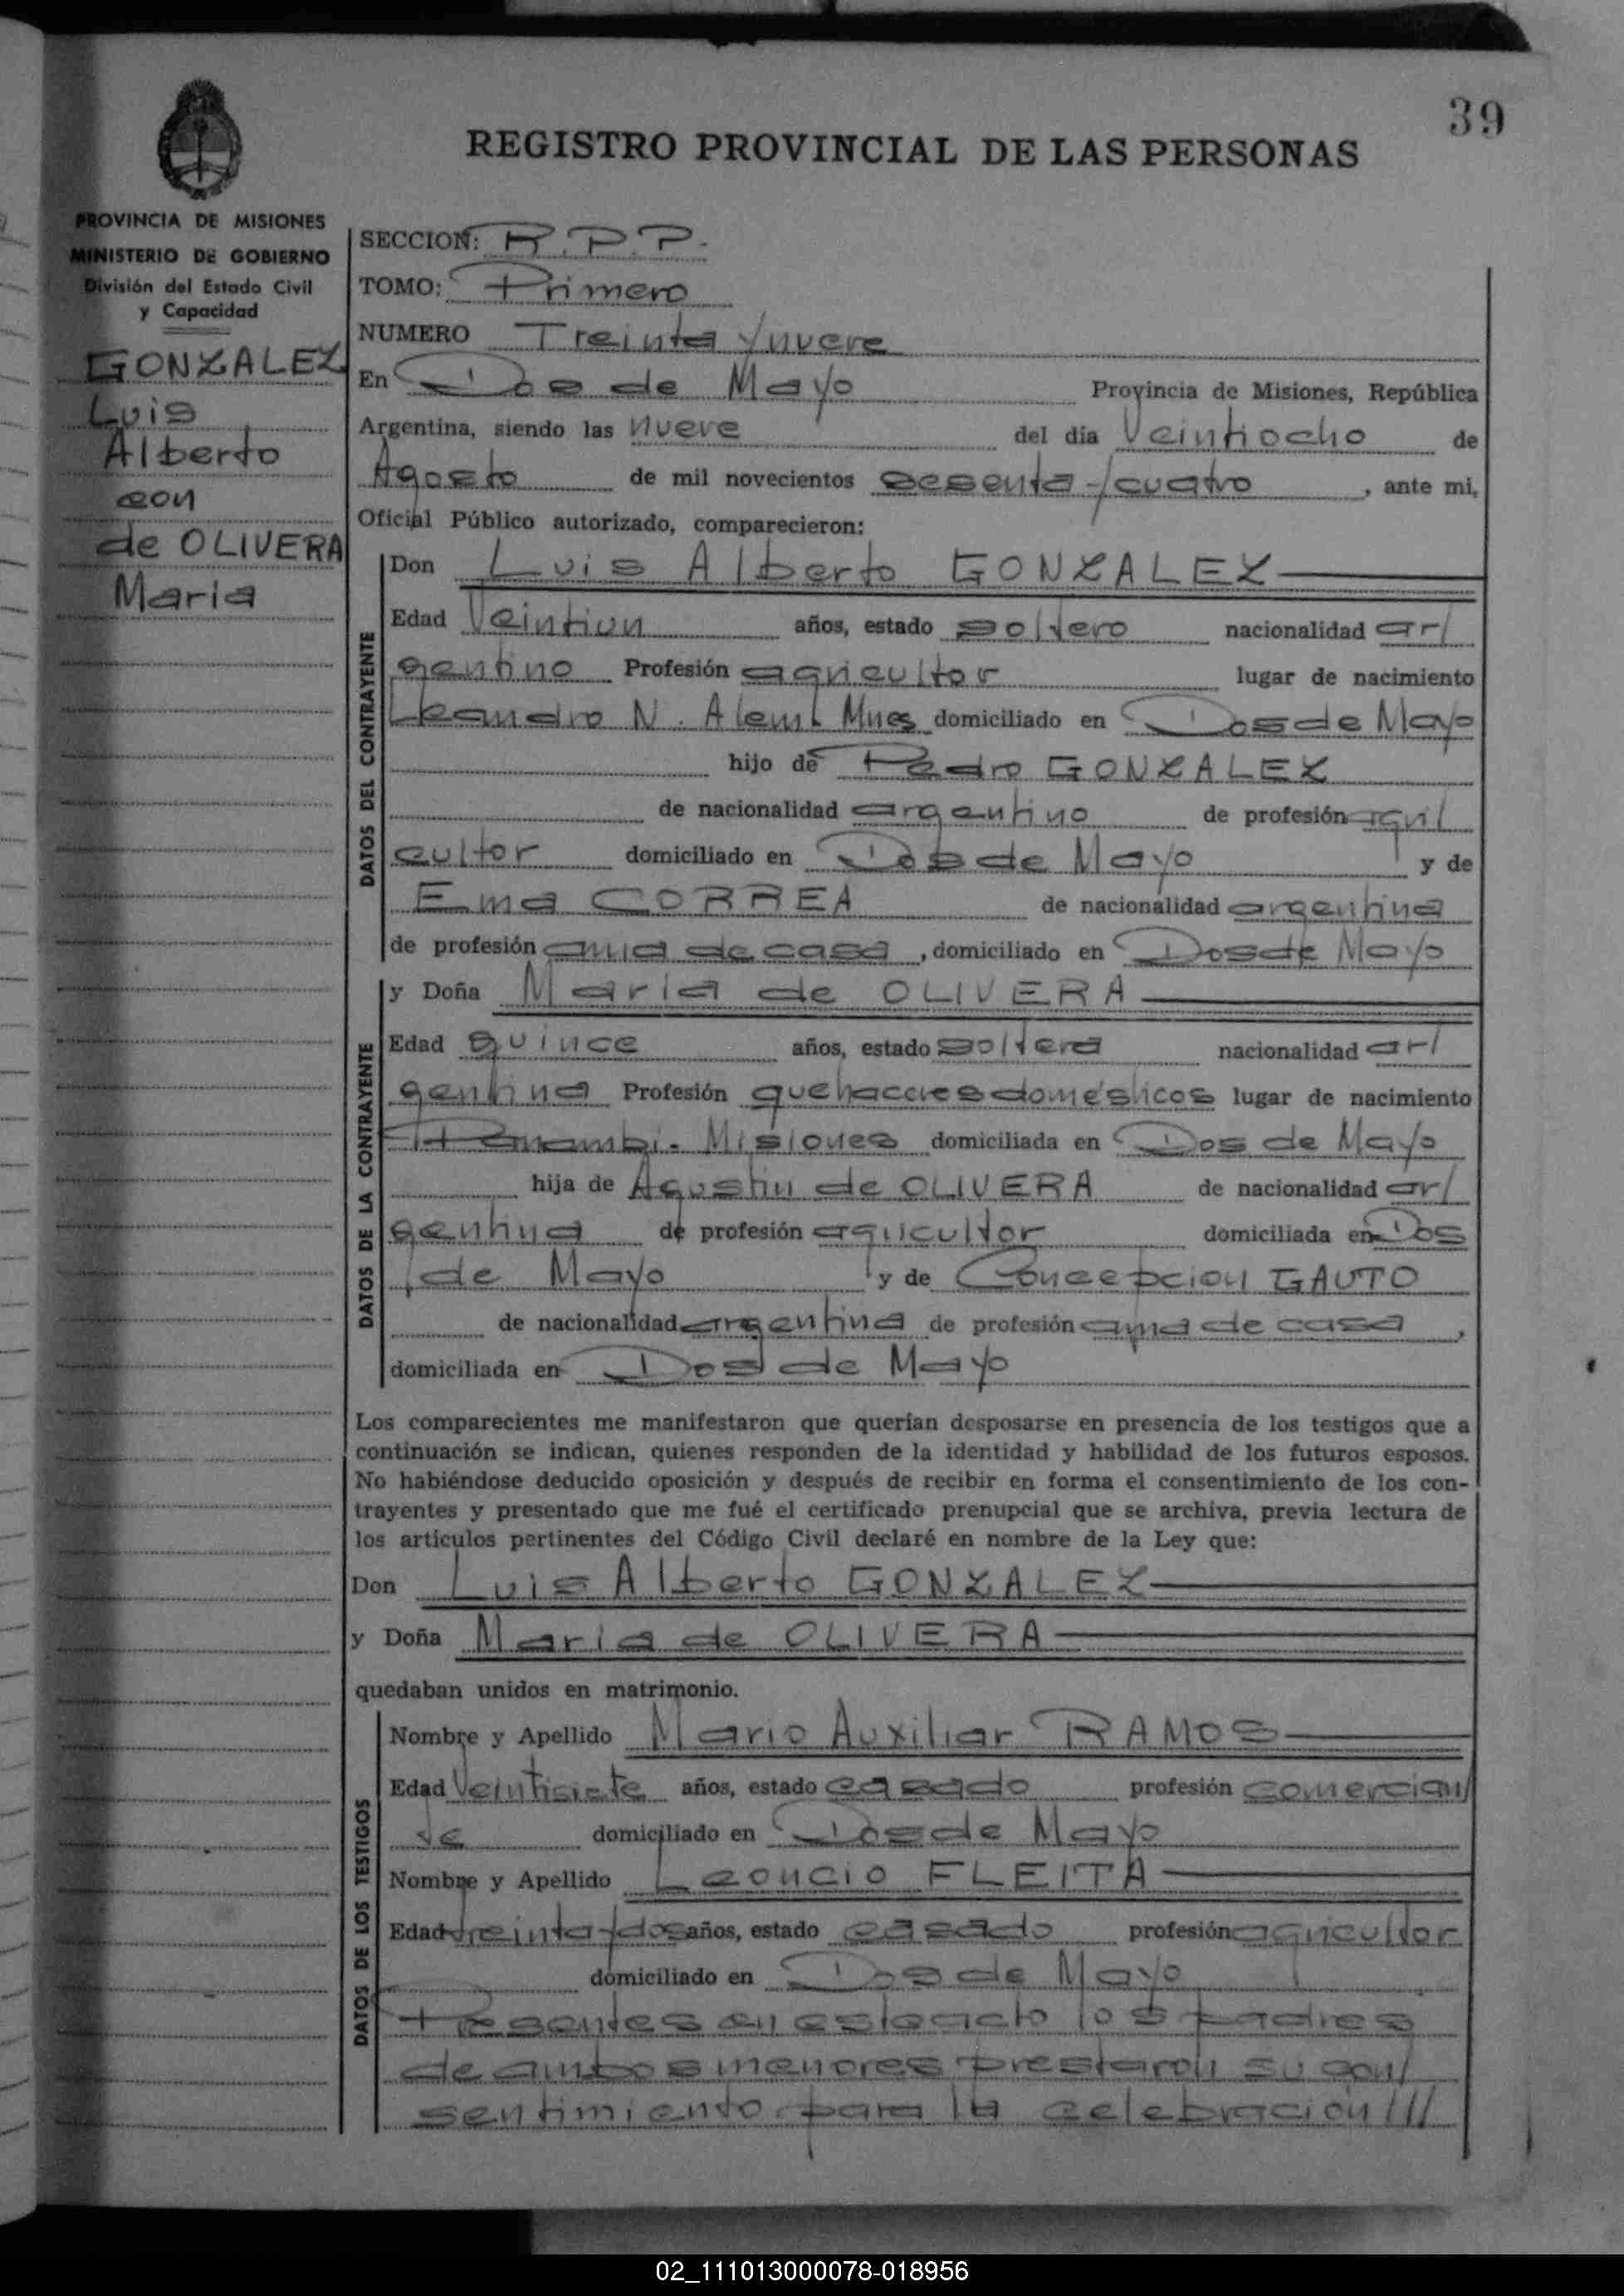 39
REGISTRO PROVINCIAL DE LAS PERSONAS
PROVINCIA DE MISIONES
MINISTERIO DE GOBIERNO
División del Estado Civil
y Capacidad
GONZALEZ
Luis
Alberto
con
de OLIVERA
Maria
SECCION: R.P.P.
TOMO: Primero
NUMERO Treinta y nueve
En Dos de Mayo Provincia de Misiones, República
Argentina, siendo las nueve del día Veintiocho de
Agosto de mil novecientos sesenta y cuatro, ante mi,
Oficial Público autorizado, comparecieron:
DATOS DEL CONTRAYENTE
Don Luis Alberto GONZALEZ
Edad Veintiun años, estado soltero nacionalidad ar/
gentino Profesión agricultor lugar de nacimiento
Leandro N. Alem domiciliado en Dos de Mayo
hijo de Pedro GONZALEZ
de nacionalidad argentino de profesión agri/
cultor domiciliado en Dos de Mayo y de
Ema CORREA de nacionalidad argentina
de profesión ama de casa, domiciliado en Dos de Mayo
DATOS DE LA CONTRAYENTE
y Doña Maria de OLIVERA
Edad quince años, estado soltera nacionalidad ar/
gentina Profesión quehaceres domésticos lugar de nacimiento
Panambi - Misiones domiciliada en Dos de Mayo
hija de Agustin de OLIVERA de nacionalidad ar/
gentina de profesión agricultor domiciliada en Dos
de Mayo y de Concepcion GAUTO
de nacionalidad argentina de profesión ama de casa,
domiciliada en Dos de Mayo
Los comparecientes me manifestaron que querían desposarse en presencia de los testigos que a
continuación se indican, quienes responden de la identidad y habilidad de los futuros esposos.
No habiéndose deducido oposición y después de recibir en forma el consentimiento de los con-
trayentes y presentado que me fué el certificado prenupcial que se archiva, previa lectura de
los artículos pertinentes del Código Civil declaré en nombre de la Ley que:
Don Luis Alberto GONZALEZ
y Doña Maria de OLIVERA
quedaban unidos en matrimonio.
DATOS DE LOS TESTIGOS
Nombre y Apellido Mario Auxiliar RAMOS
Edad Veintisiete años, estado casado profesión comercian/
te domiciliado en Dos de Mayo
Nombre y Apellido Leoncio FLEITA
Edad treinta y dos años, estado casado profesión agricultor
domiciliado en Dos de Mayo
Presentes en este acto los padres
de ambos menores prestaron su con/
sentimiento para la celebración///
02_111013000078-018956